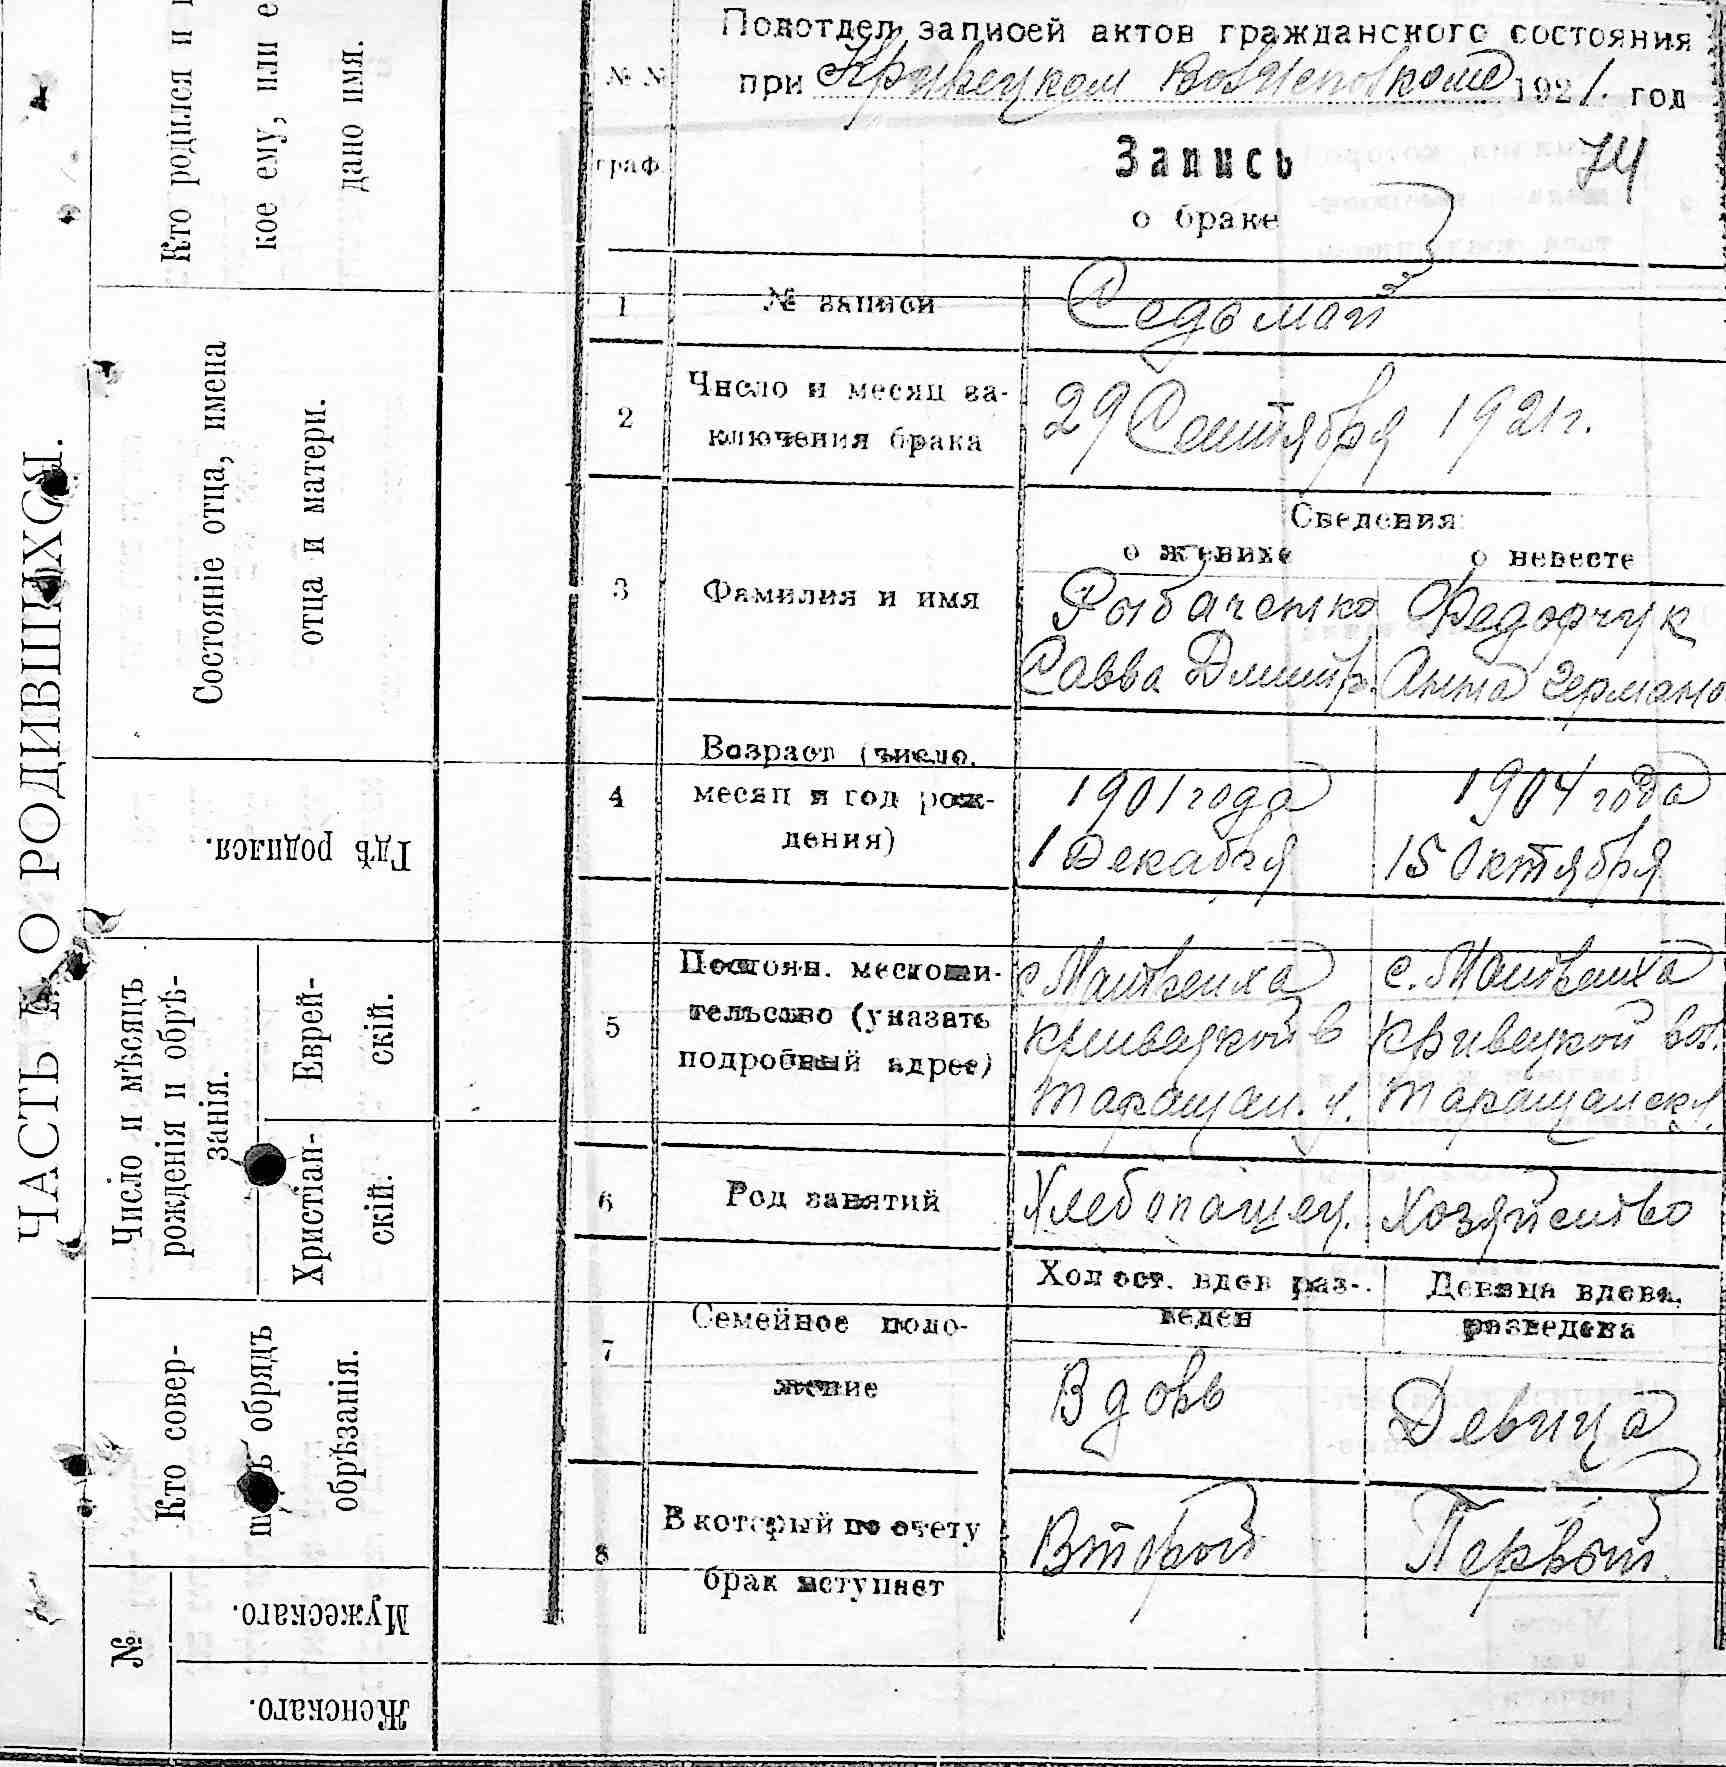 ЧАСТЬ I. О РОДИВШИХСЯ.
Кто родился и
кое ему, или е
дано имя.
Состояніе отца, имена
отца и матери.
Гдѣ родился.
Число и мѣсяцъ
рожденія и обрѣ-
занія.
Еврей-
скій.
Христіан-
скій.
Кто совер-
обрядъ
обрѣзанія.
№
Мужескаго.
Женскаго.
Подотдел записей актов гражданского состояния
№ № при Кривецком 1921. год
граф.
Запись 74
о браке
1 № записи Седьмой
2 Число и месяц за-
ключения брака 29 Сентября 1921 г.
Сведения
о женихе о невесте
3 Фамилия и имя Рыбаченко Федорчук
Савва Дмитр. Анна Германо
4 Возраст (число,
месяц и год рож-
дения)
1901 года 1904 года
1 Декабря 15 Октября
5 Постоян. местожи-
тельство (указать
подробный адрес)
с. Матвеиха с. Матвеиха
Кривецкой в Кривецкой вол.
Таращан. у. Таращанск у.
6 Род занятий Хлебопашец. Хозяйство
7 Семейное поло-
жение
Холост. вдов раз-
веден
Девица вдова,
разведена
Вдовъ Девица
8 В который по счету
брак вступает
Второй Первый